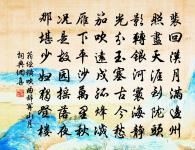 裴回漢月滿邊州
照盡天涯到隴頭
影轉銀河寰海靜
光分玉塞古今愁
笳吹遠戍孤烽滅
雁下平沙萬里秋
況是故園搖落夜
那堪少婦獨登樓
翁綬橫吹曲辭關山月